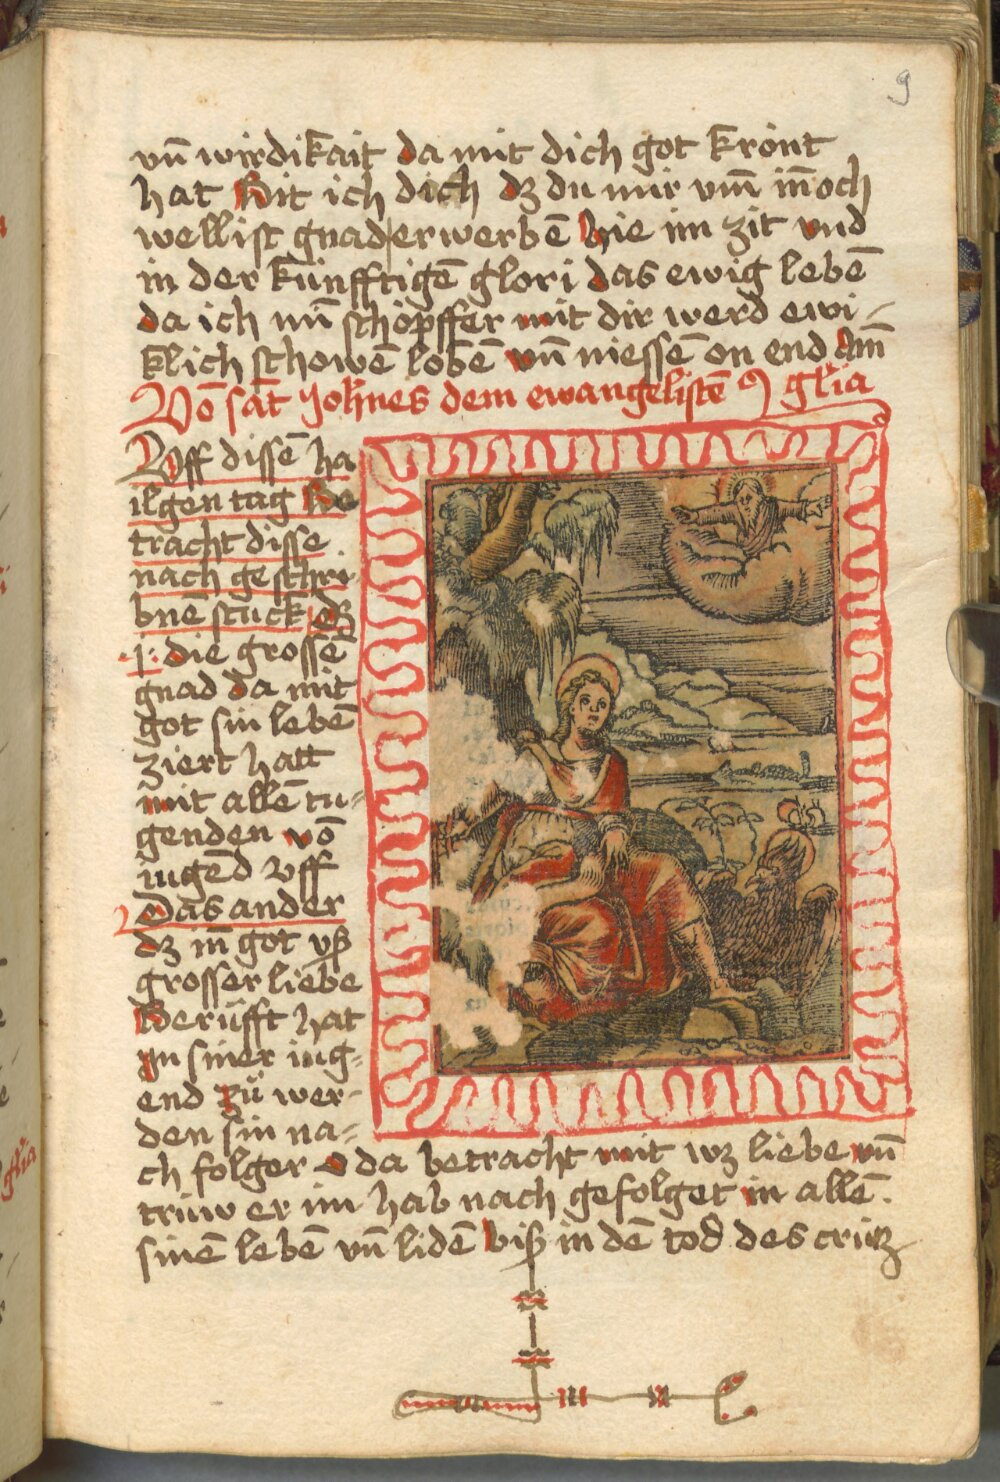 9
vn̄ wirdikait da mit dich got krönt
hat Bit ich dich dz du mir vm̄ in̄ och
wellist gnad erwerbē hie im zit vnd
in der künfftigē glori das ewig lebē
da ich min̄ schöpffer mit dir werd ewi-
klich schowē lobē vn̄ niessē on end Am̄
Vō sāt Joh̄nes dem ewangelistē gl̄ia
Vff dissē ha
ilgen tag Be
tracht disse
nach geschri
bnē stuck
·1· die grossē
gnad da mit
got sin lebē
ziert hatt
mit allē tu-
genden vō
jugēd vff
Das ander
dz in̄ got vß
grosser liebe
Berüfft hat
in siner iug-
end zů wer-
den sin na-
ch folger da betracht mit wz liebe vn̄
trüw er im hab nach gefolget in allē
sinē lebē vn̄ lidē biß in dē tod des crütz